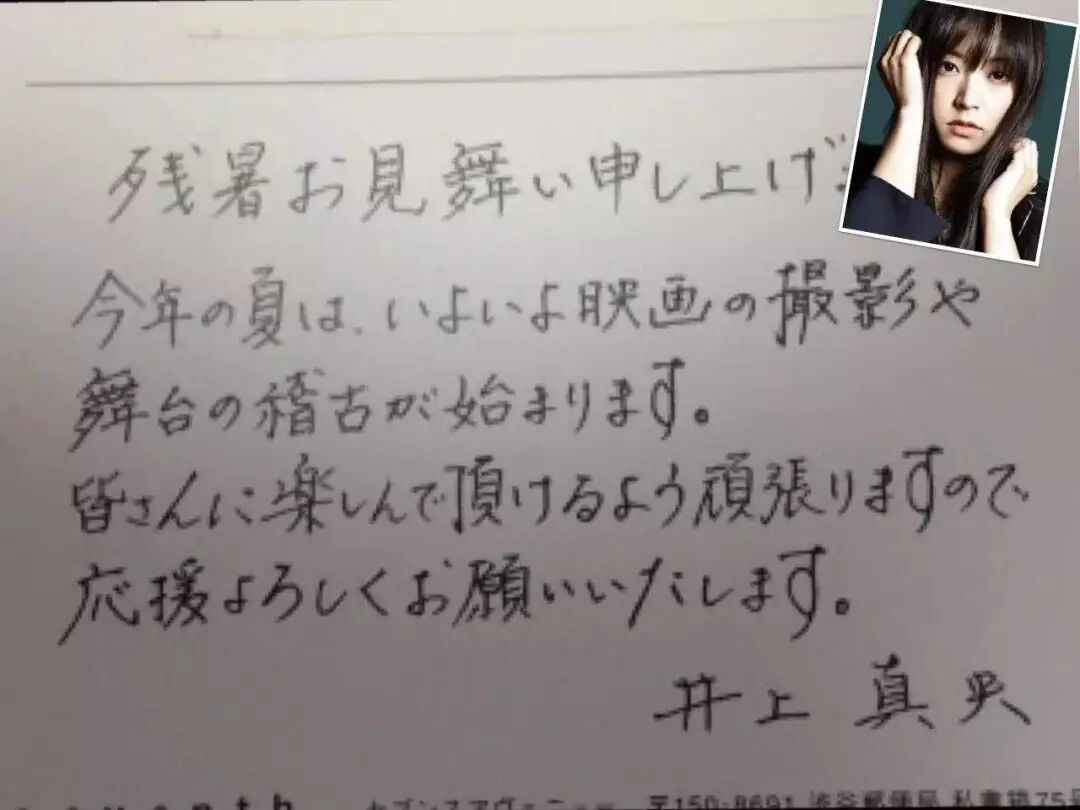 残暑お見舞い申し上げ
今年の夏は、いよいよ映画の撮影や
舞台の稽古が始まります。
皆さんに楽しんで頂けるよう頑張りますので
応援よろしくお願いいたします。
井上真央
セブンスアヴェニュー 〒150-8691 渋谷郵便局 私書箱75号